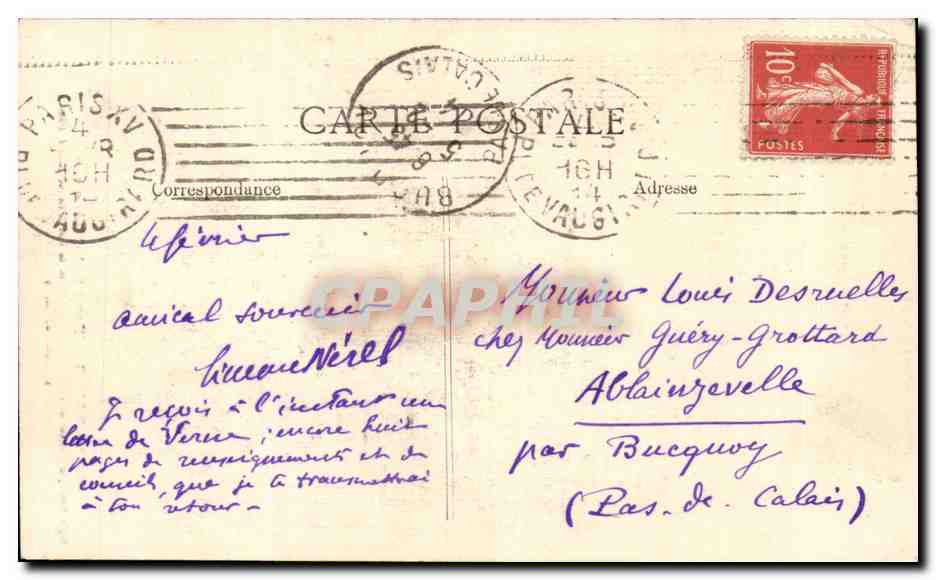 CARTE POSTALE
Correspondance
Adresse
REPUBLIQUE FRANÇAISE
10c
POSTES
PARIS XV
16H
R. DE VAUGIRARD
PAS DE CALAIS
16H
14
R. DE VAUGIRARD
CPAPHIL
4 février
amical souvenir
Simone
Je reçois à l'instant une
de Verne ; encore huit
pages de renseignements et de
conseils, que je te transmettrai
à ton retour -
Monsieur Louis Desruelles
chez Monsieur Guéry-Grottard
Ablainzevelle
par Bucquoy
(Pas-de-Calais)